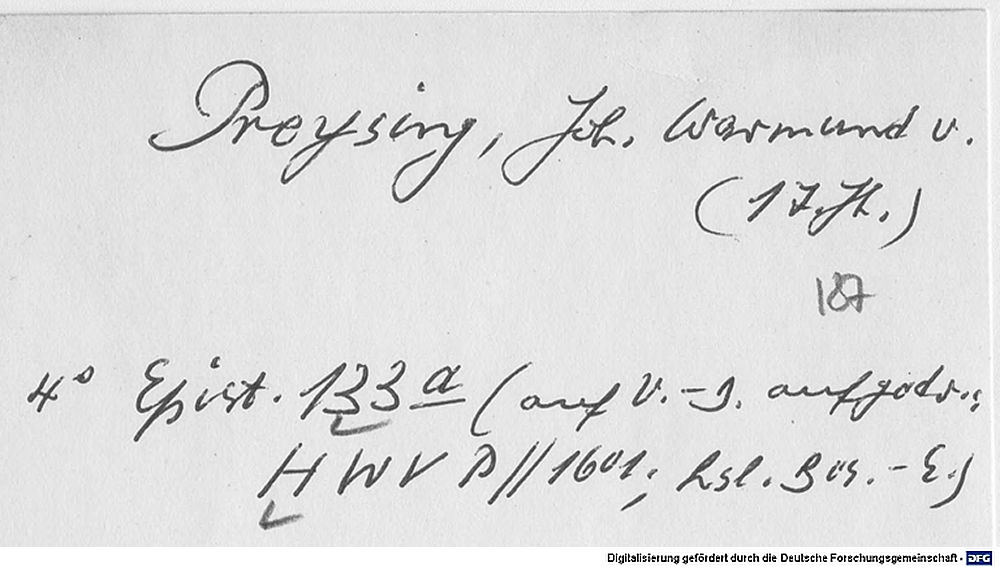 Preysing, Joh. Warmund v.
(17. Jh.)
187
4° Epist. 133 a (auf V.-D. aufgedr.:
H W V P // 1601; hsl. Bes.-E.)
Digitalisierung gefördert durch die Deutsche Forschungsgemeinschaft - DFG